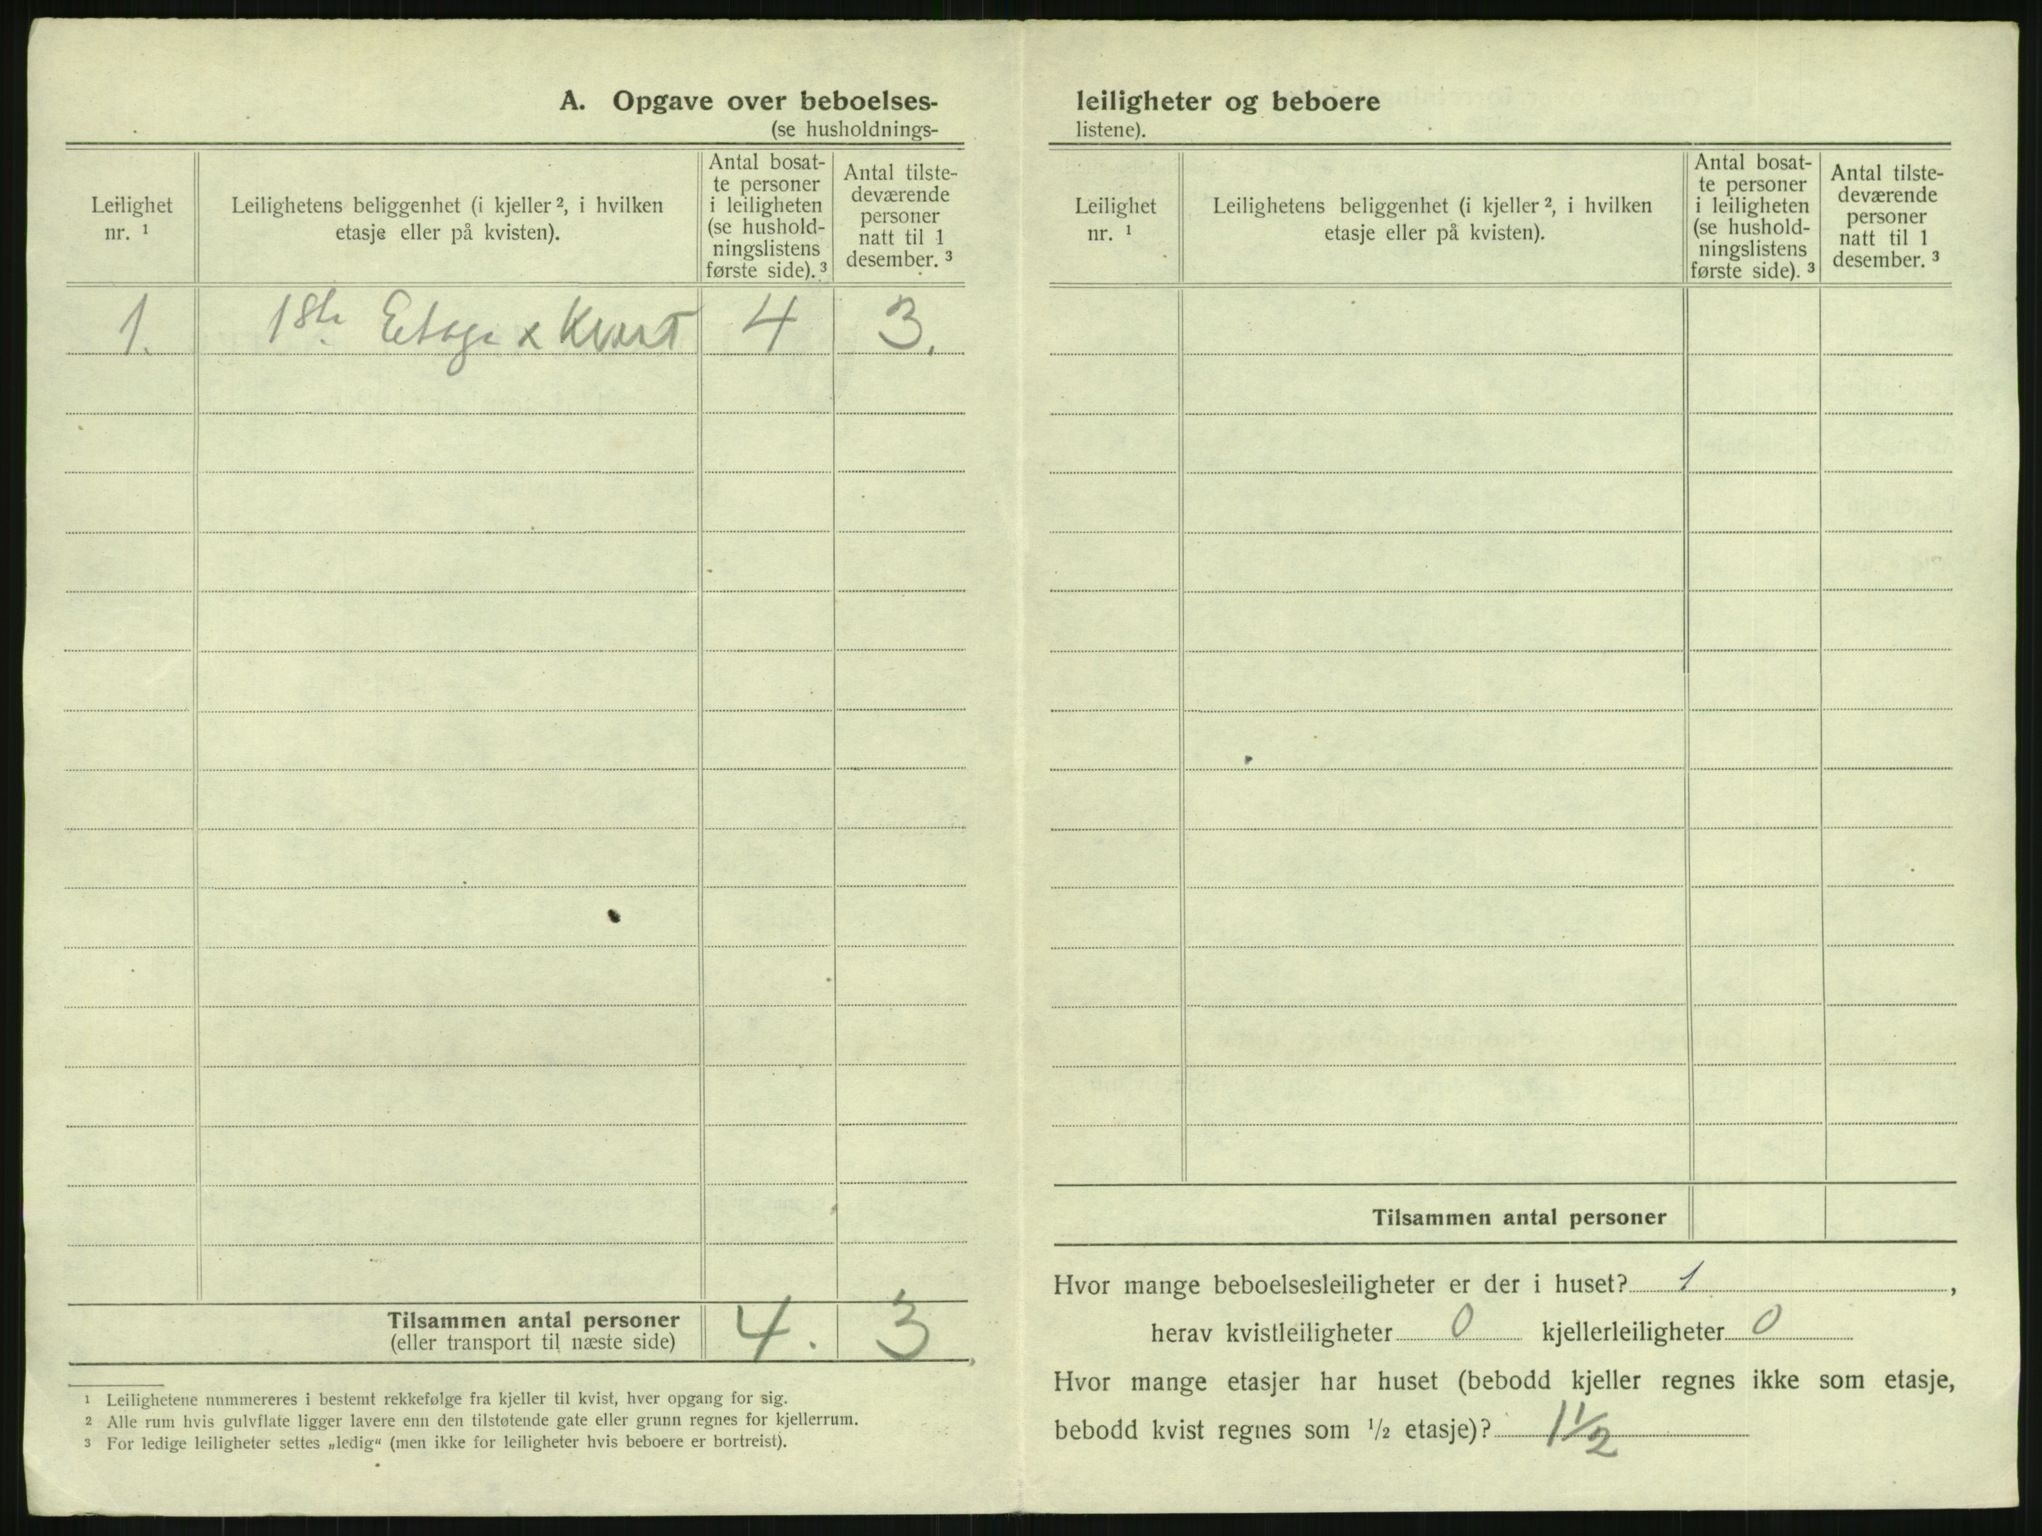 A. Opgave over beboelses-
(se husholdnings-
Leilighet
nr. ¹
Leilighetens beliggenhet (i kjeller ², i hvilken
etasje eller på kvisten).
Antal bosat-
te personer
i leiligheten
(se hushold-
ningslistens
første side). ³
Antal tilste-
deværende
personer
natt til 1
desember. ³
1. 1ste Etage x Kvist 4 3.
Tilsammen antal personer
(eller transport til næste side)
4. 3.
¹ Leilighetene nummereres i bestemt rekkefølge fra kjeller til kvist, hver opgang for sig.
² Alle rum hvis gulvflate ligger lavere enn den tilstøtende gate eller grunn regnes for kjellerrum.
³ For ledige leiligheter settes „ledig“ (men ikke for leiligheter hvis beboere er bortreist).
leiligheter og beboere
listene).
Leilighet
nr. ¹
Leilighetens beliggenhet (i kjeller ², i hvilken
etasje eller på kvisten).
Antal bosat-
te personer
i leiligheten
(se hushold-
ningslistens
første side). ³
Antal tilste-
deværende
personer
natt til 1
desember. ³
Tilsammen antal personer
Hvor mange beboelsesleiligheter er der i huset? 1,
herav kvistleiligheter 0 kjellerleiligheter 0
Hvor mange etasjer har huset (bebodd kjeller regnes ikke som etasje,
bebodd kvist regnes som ½ etasje)? 1½